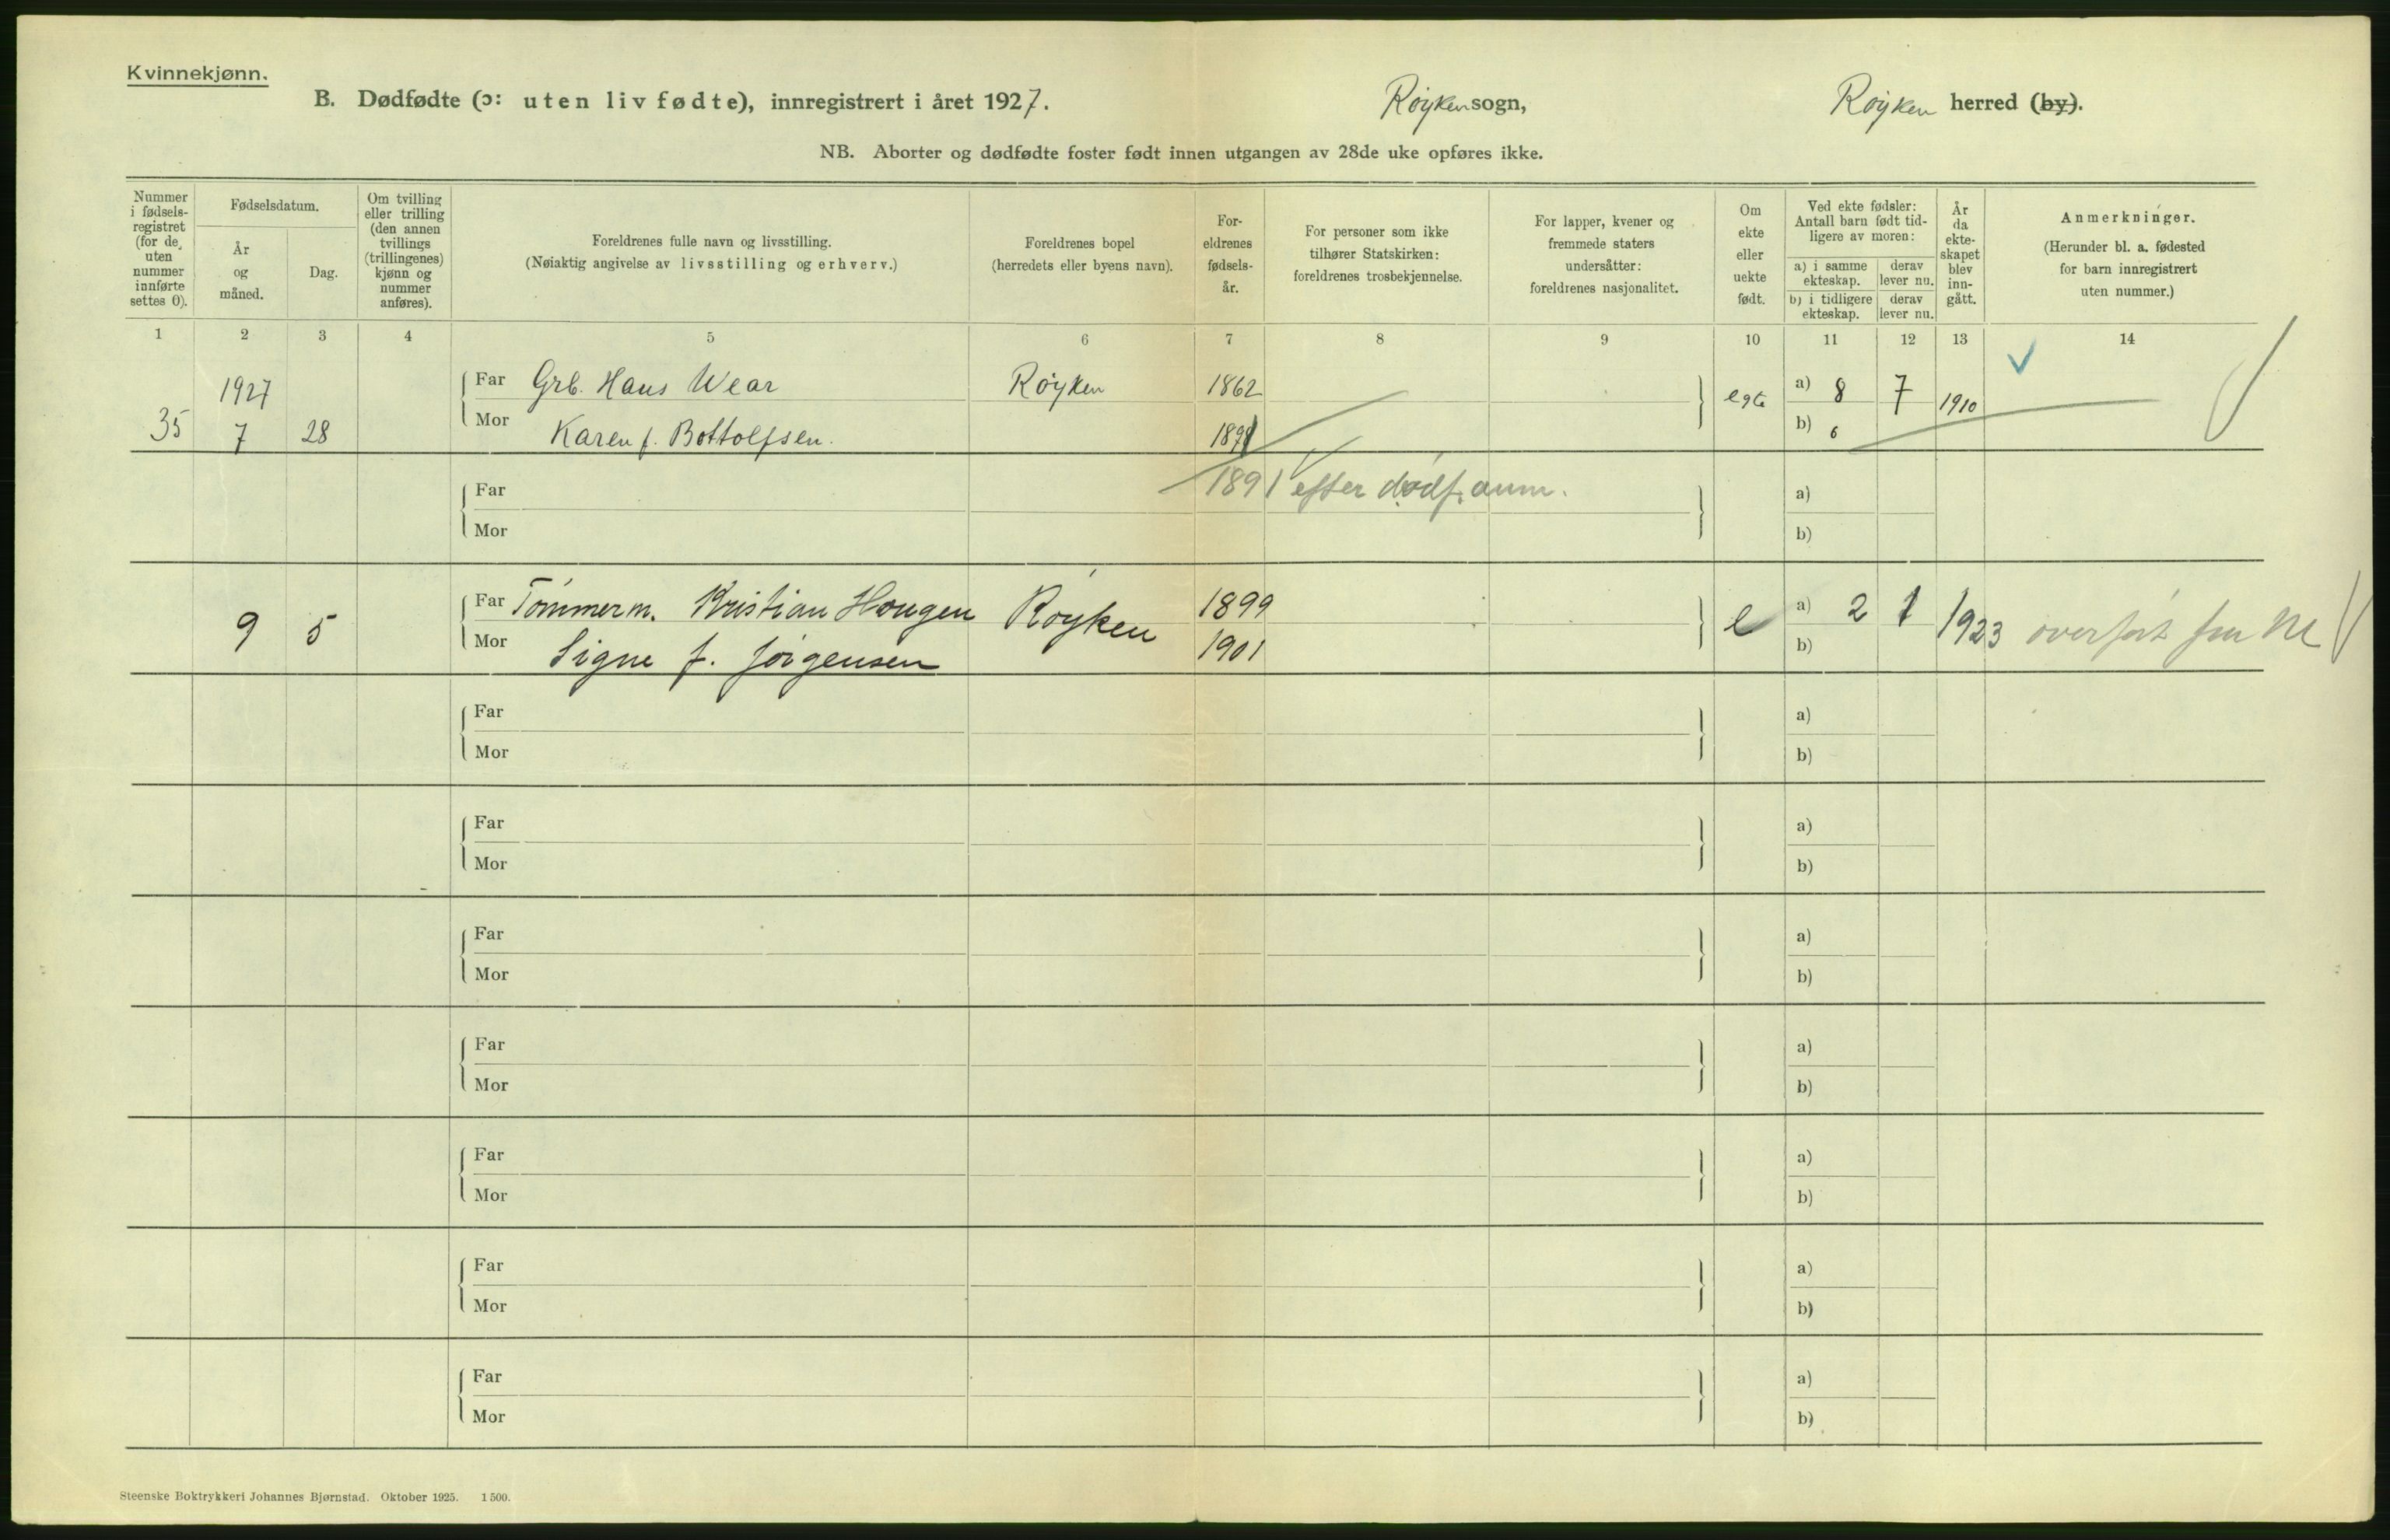 Kvinnekjønn.
B. Dødfødte (ɔ: uten liv fødte), innregistrert i året 1927. Røyken sogn, Røyken herred (by).
NB. Aborter og dødfødte foster født innen utgangen av 28de uke opføres ikke.
Nummer
i fødsels-
registret
(for de
uten
nummer
innførte
settes 0).
Fødselsdatum.
År
og
måned.
Dag.
Om tvilling
eller trilling
(den annen
tvillings
(trillingenes)
kjønn og
nummer
anføres).
Foreldrenes fulle navn og livsstilling.
(Nøiaktig angivelse av livsstilling og erhverv.)
Foreldrenes bopel
(herredets eller byens navn).
For-
eldrenes
fødsels-
år.
For personer som ikke
tilhører Statskirken:
foreldrenes trosbekjennelse.
For lapper, kvener og
fremmede staters
undersåtter:
foreldrenes nasjonalitet.
Om
ekte
eller
uekte
født.
Ved ekte fødsler:
Antall barn født tid-
ligere av moren:
a) i samme
ekteskap.
derav
lever nu.
b) i tidligere
ekteskap.
derav
lever nu.
År
da
ekte-
skapet
blev
inn-
gått.
Anmerkninger.
(Herunder bl. a. fødested
for barn innregistrert
uten nummer.)
1 2 3 4 5 6 7 8 9 10 11 12 13 14
1927 Far Grb. Hans Wear Røyken 1862 egte a) 8 7 1910
35 7 28 Mor Karen f. Bottolfsen. 1891 b) 0
Far 1891 efter dødf. anm. a)
Mor b)
9 5 Far Tømmerm. Kristian Haugen Røyken 1899 e a) 2 1 1923 overført fra M
Mor Signe f. Jørgensen 1901 b)
Far a)
Mor b)
Far a)
Mor b)
Far a)
Mor b)
Far a)
Mor b)
Far a)
Mor b)
Far a)
Mor b)
Far a)
Mor b)
Steenske Boktrykkeri Johannes Bjørnstad. Oktober 1925. 1500.